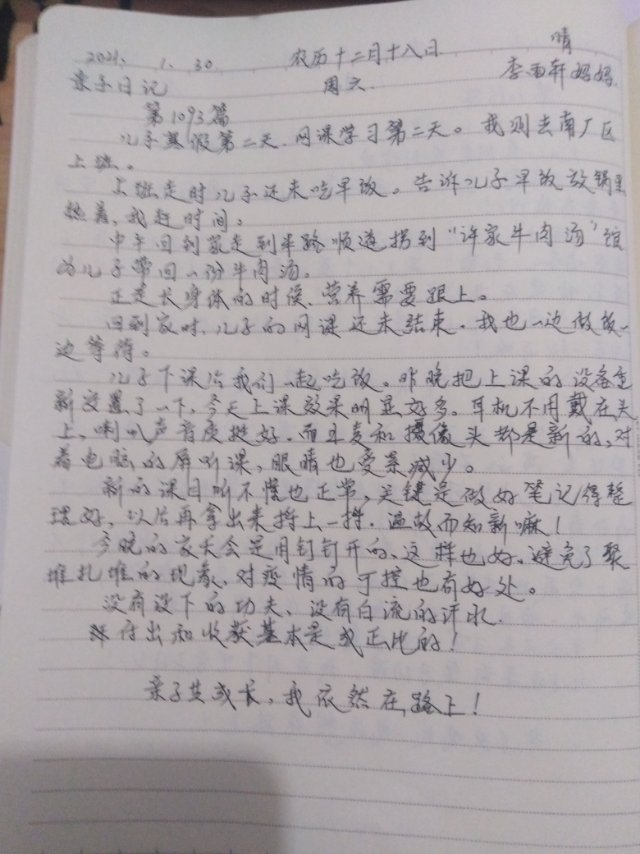 2021. 1. 30 农历十二月十八日 晴
亲子日记 周六 李雨轩妈妈
第1093篇
儿子寒假第二天、网课学习第二天。我则去南厂区
上班。
上班走时儿子还未吃早饭。告诉儿子早饭放锅里
热着,我赶时间。
中午回到家走到半路顺道拐到“许家牛肉汤”馆
为儿子带回一份牛肉汤。
正是长身体的时候、营养需要跟上。
回到家时、儿子的网课还未结束。我也一边做饭一
边等待。
儿子下课后我们一起吃饭。昨晚把上课的设备重
新设置了一下,今天上课效果明显好多。耳机不用戴在头
上,喇叭声音质挺好,而且麦和摄像头都是新的,对
着电脑的屏听课,眼睛也受累减少。
新的课目听不懂也正常,关键是做好笔记得整
理好,以后再拿出来捋上一捋.温故而知新嘛!
今晚的家长会是用钉钉开的、这样也好、避免了聚
堆扎堆的现象,对疫情的可控也有好处。
没有设下的功夫、没有白流的汗水.
付出和收获基本是成正比的!
亲子共成长,我依然在路上!